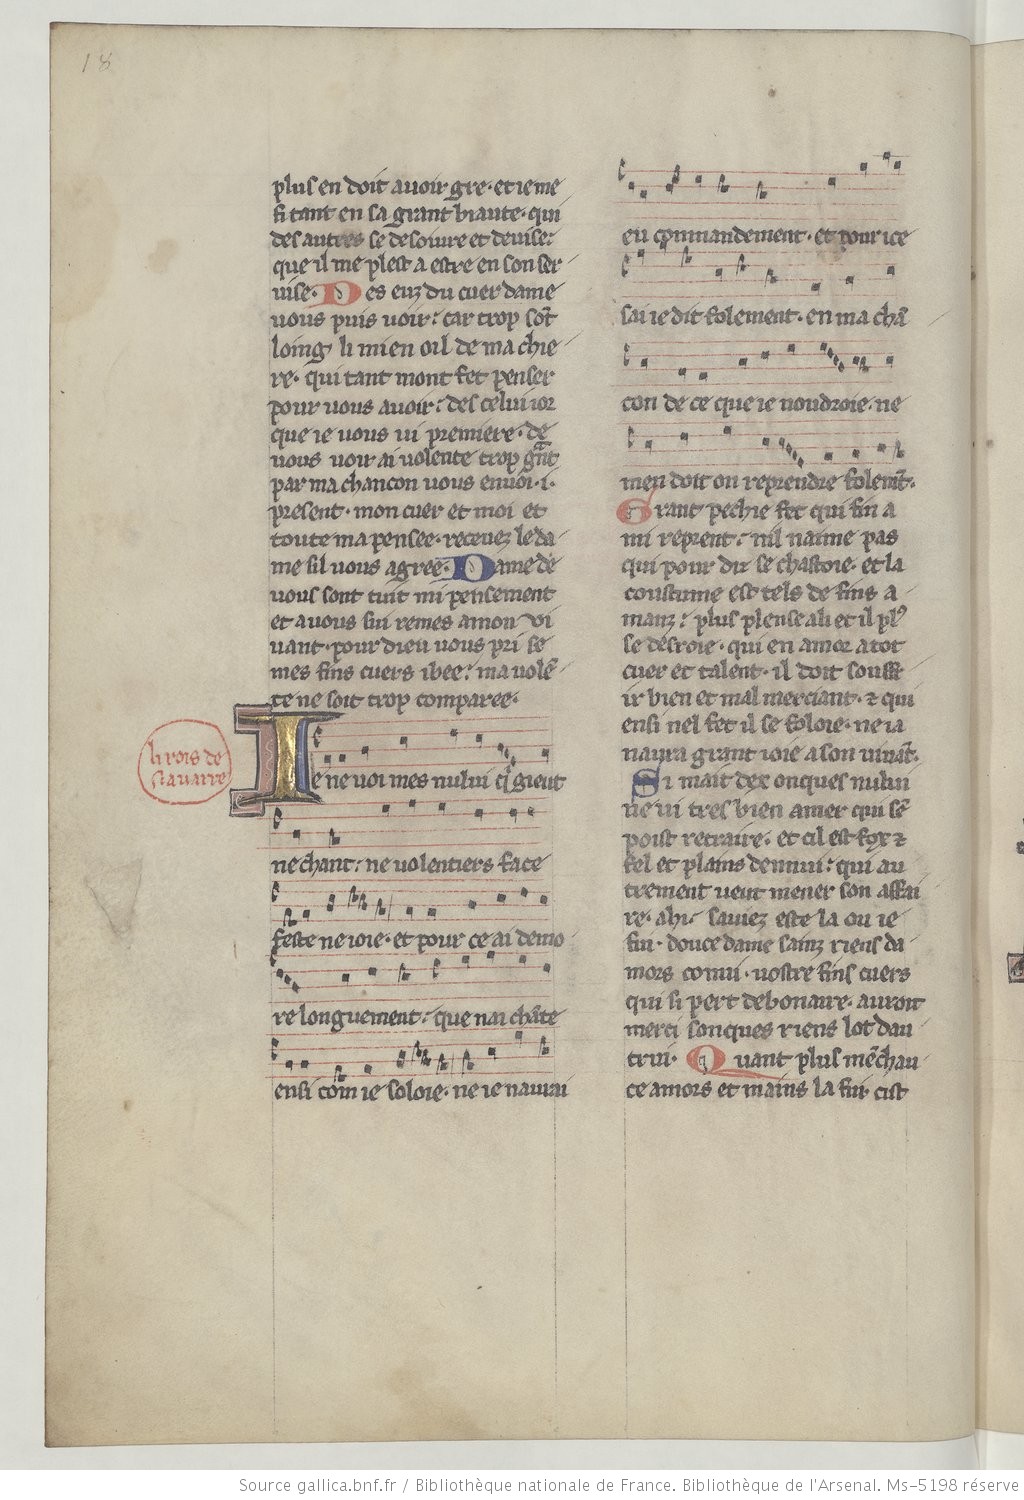 18
plus en doit auoir gre· et ieme
fi tant en sa grant biaute· qui
des autres se desoiure et deuise:
que il me plest a estre en son ser
uise· Des euz du cuer dame
uous puis uoir: car trop sōt
loing li mien oil de ma chie
re· qui tant mont fet penser
pour uous auoir: des celui ior
que ie uous ui premiere· de
uous uoir ai uolente trop gͣnt
par ma chancon uous enuoi·i·
present· mon cuer et moi et
toute ma pensee· receuez le da
me sil uous agree· Dame de
uous sont tuit mi pensement
et a uous sui remes a mon vi
uant· pour dieu uous pri se
mes fins cuers ibee: ma uolē
te ne soit trop comparee·
li rois de
Nauarre
Ie ne uoi mes nului qͥ gieut
ne chant: ne uolentiers face
feste ne ioie· et pour ce ai demo
re longuement: que nai chāte
ensi com ie soloie· ne ie nauoi
eu commandement· et pour ice
sai ie dit folement· en ma chā
con de ce que ie uoudroie· ne
men doit on reprendre folemt̄·
Grant pechie fet qui fin a
mi reprent: nil naime pas
qui pour dir se chastoie· et la
coustume est tels de fins a
manz: plus plense a li et il plꝰ
se desroie· qui en amor a tot
cuer et talent· il doit souff
rir bien et mal merciant· ⁊ qui
ensi nel fet il se foloie· ne ia
naura grant ioie a son uiuāt·
Si mait dex onques nului
ne ui tres bien amer qui sē
poist retraire· et cil est fox ⁊
fel et plains denui: qui au
trement ueut mener son affai
re· ahi· sauiez este la ou ie
fui· douce dame sainz riens da
mors conui· uostre fins cuers
qui si pert debonaire· auroit
merci sonques riens lot dau
trui· Quant plus mēchau
ce amors et mains la fui· cist
Source gallica.bnf.fr / Bibliothèque nationale de France. Bibliothèque de l'Arsenal. Ms-5198 réserve